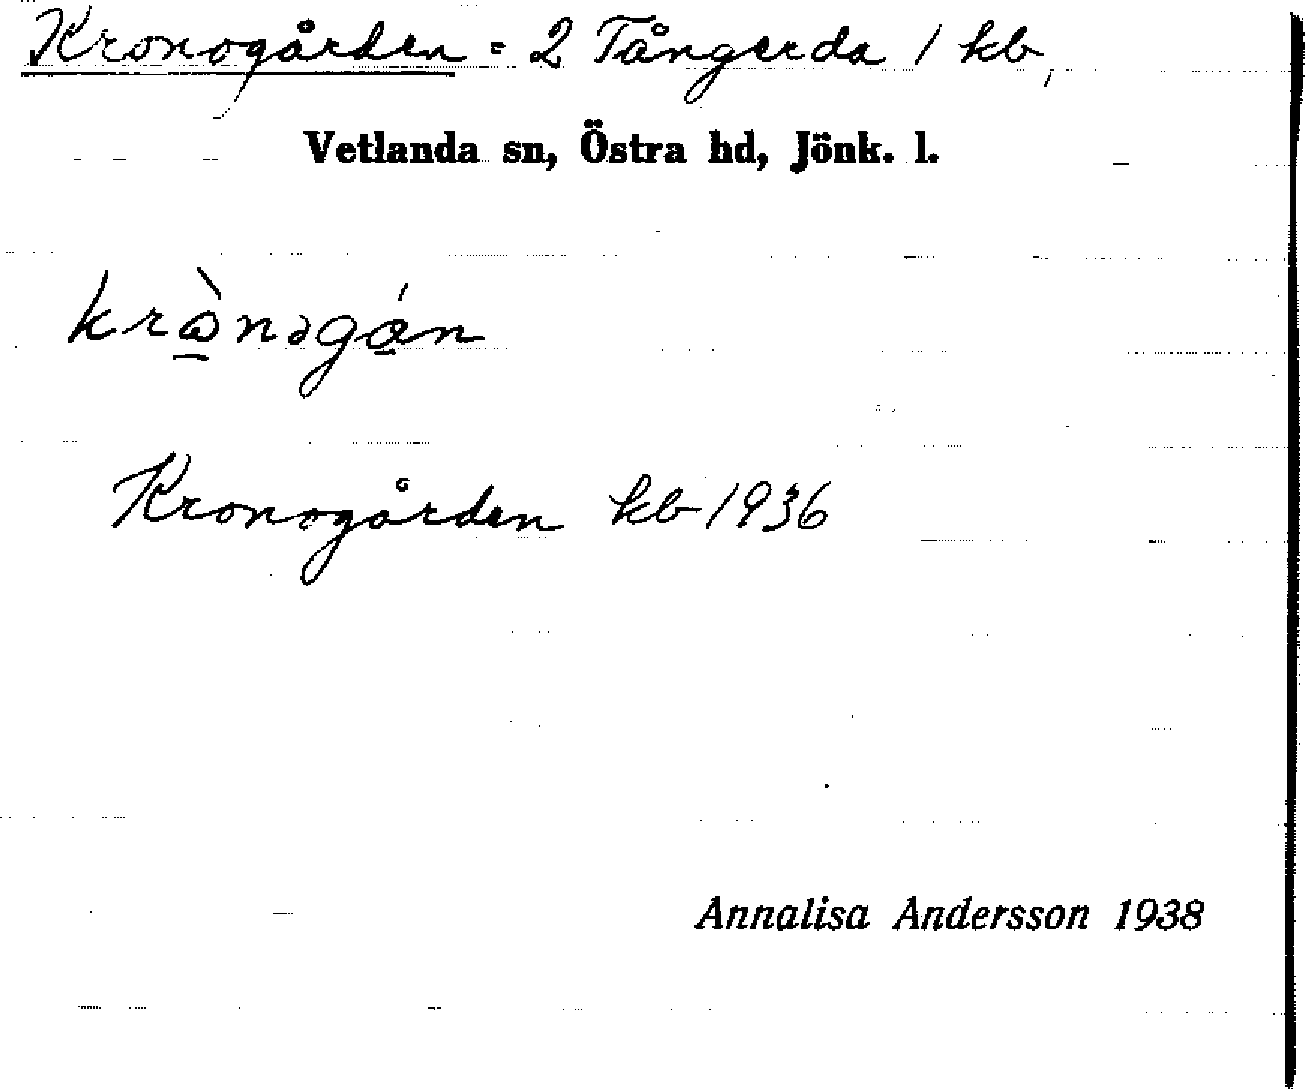 Kronogården = 2 Tångerda 1 kb,
Vetlanda sn, Östra hd, Jönk. l.
Kronogården kb 1936
Annalisa Andersson 1938